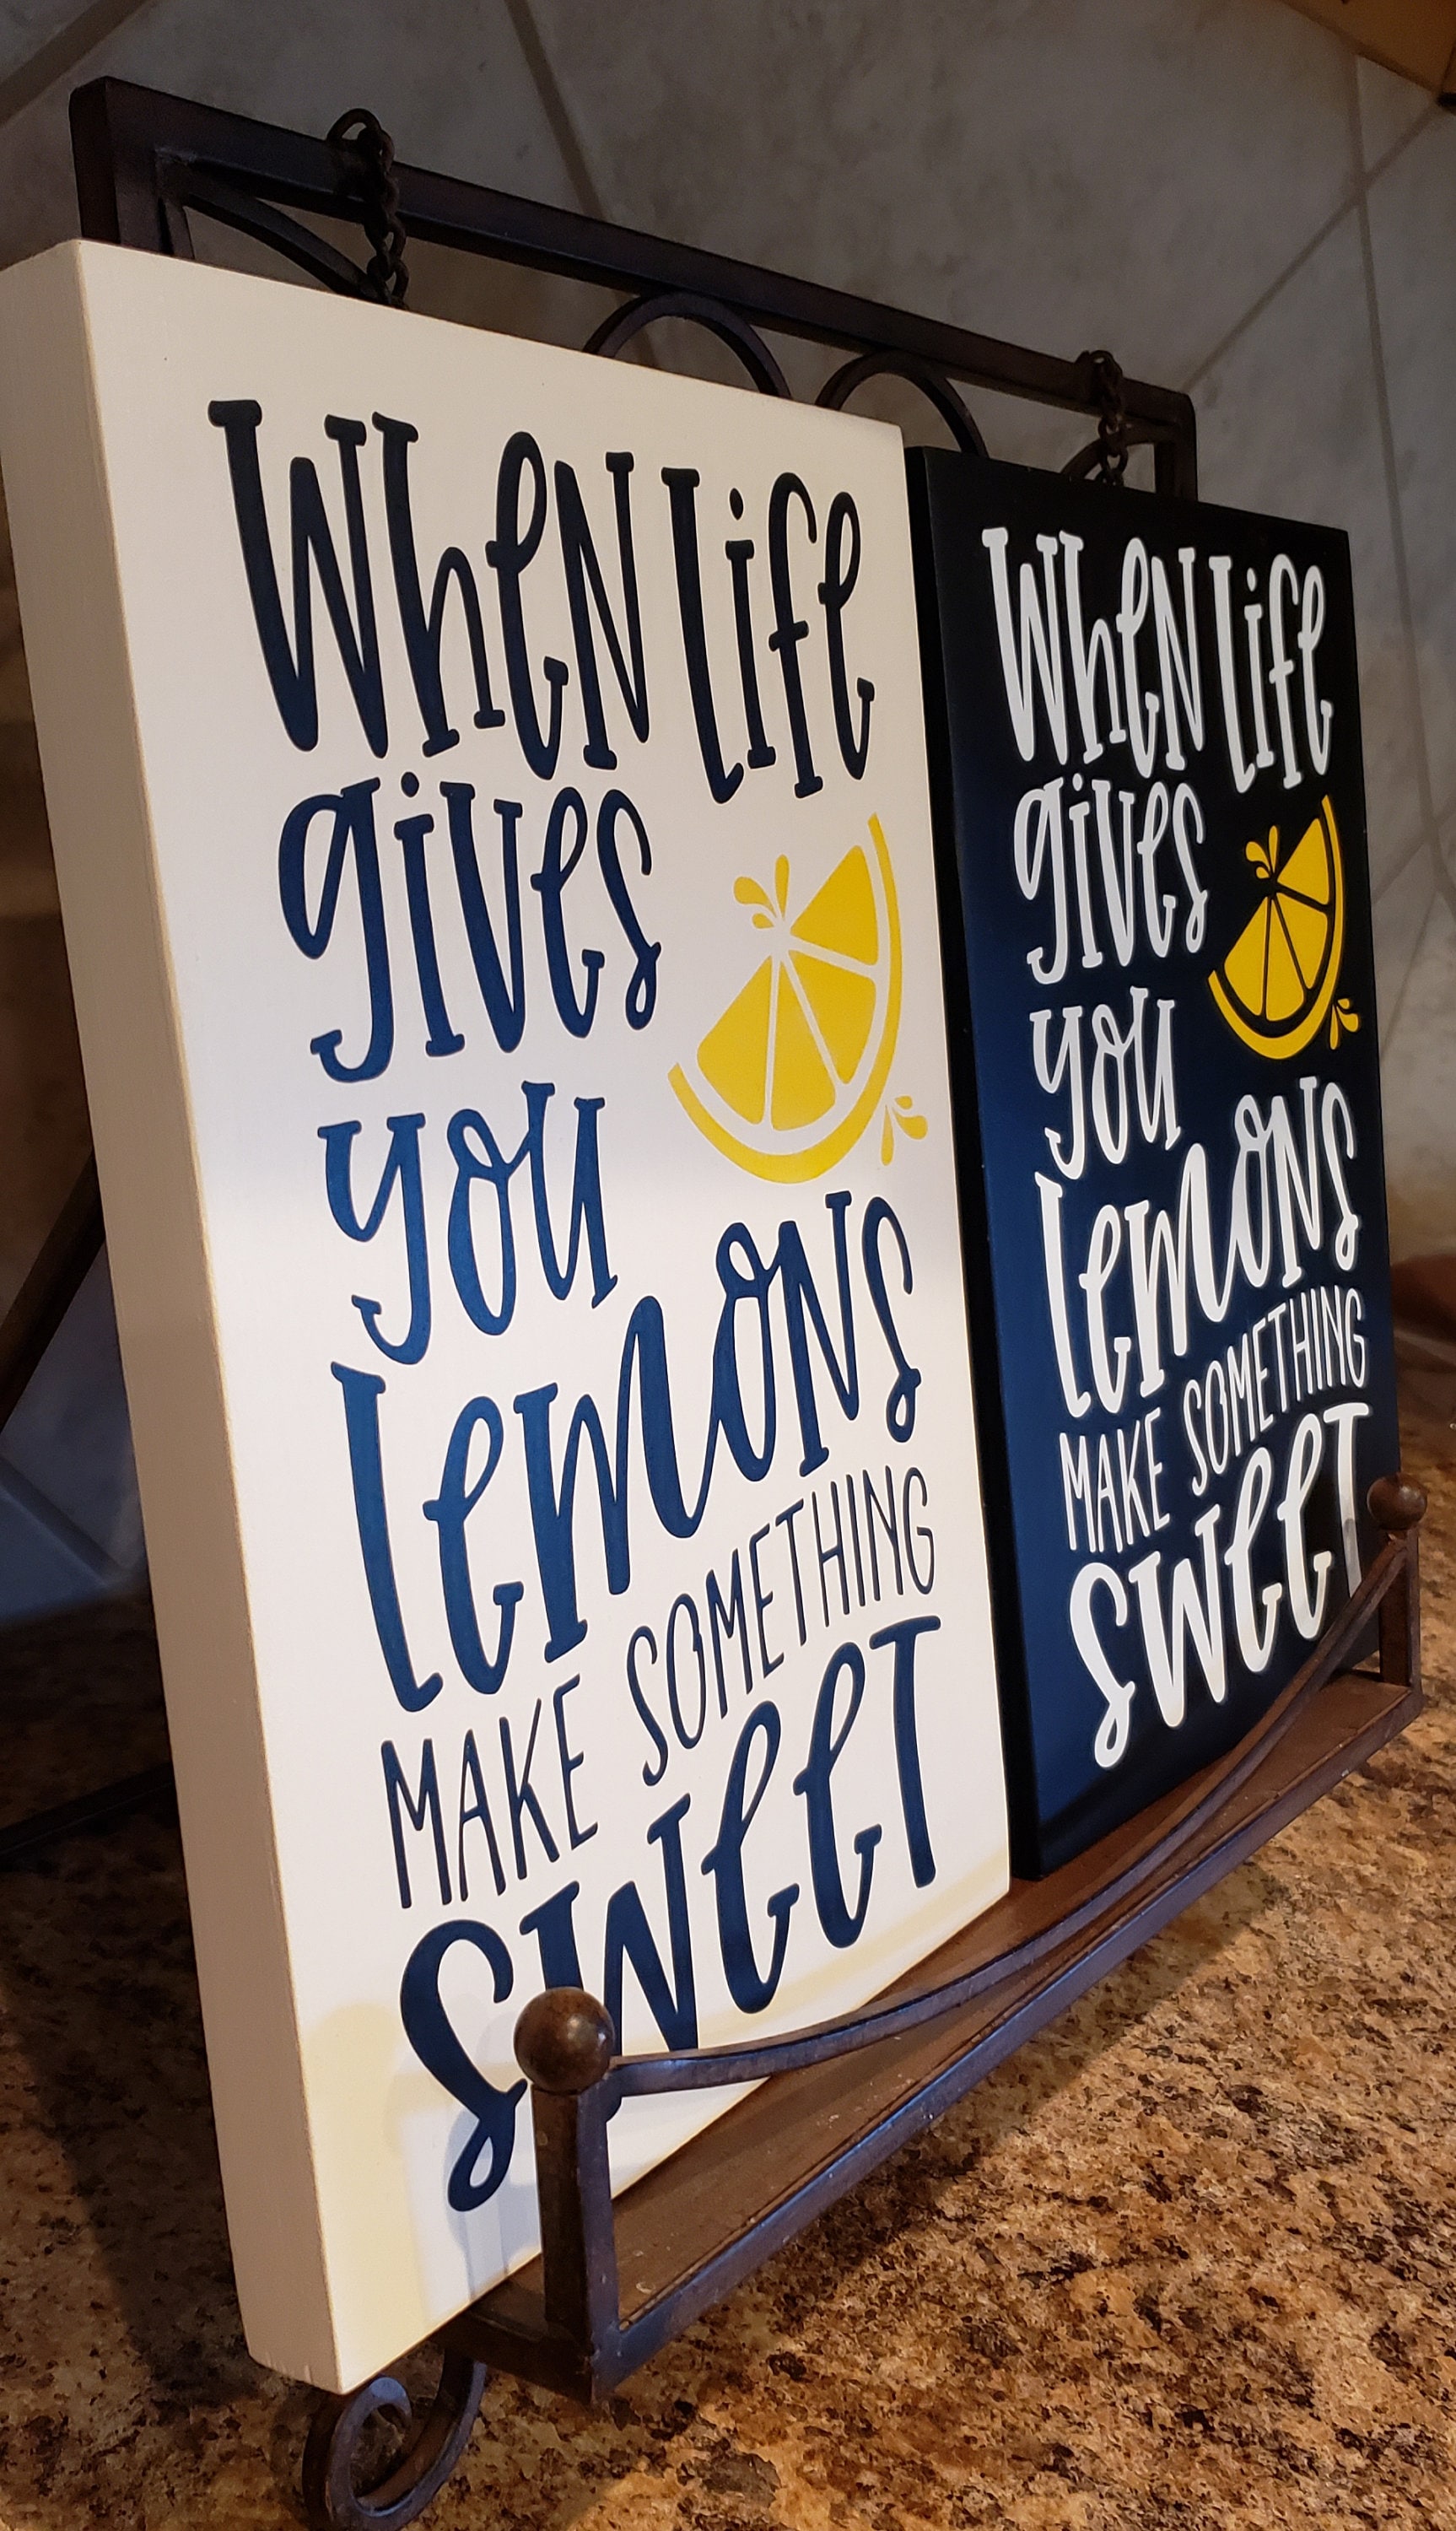 WheN Life
gives
you
lemoNs
MAKE SOMETHING
sweet
WheN Life
gives
you
lemoNs
MAKE SOMETHING
sweet